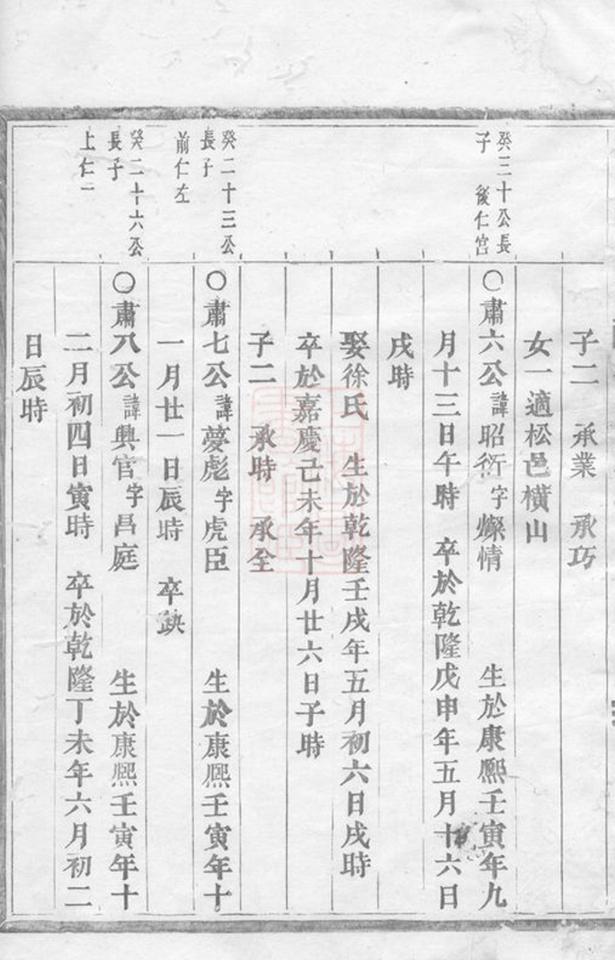 子二 承業 承巧
女一適松邑橫山
癸三十公長
子 後仁宮
○肅六公諱昭衍字燦情 生於康熙壬寅年九
月十三日午時 卒於乾隆戊申年五月十六日
戌時
娶徐氏 生於乾隆壬戌年五月初六日戌時
卒於嘉慶己未年十月廿六日子時
子二 承時 承全
癸二十三公
長子
前仁左
○肅七公諱夢彪字虎臣 生於康熙壬寅年十
一月廿一日辰時 卒缺
癸二十六公
長子
上仁一
○肅八公諱興官字昌庭 生於康熙壬寅年十
二月初四日寅時 卒於乾隆丁未年六月初二
日辰時